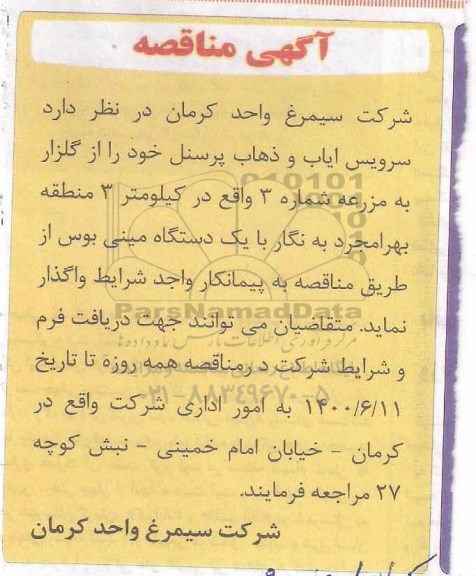 آگهی مناقصه
شرکت سیمرغ واحد کرمان در نظر دارد
سرویس ایاب و ذهاب پرسنل خود را از گلزار
به مزرعه شماره ۳ واقع در کیلومتر ۳ منطقه
بهرامجرد به نگار با یک دستگاه مینی بوس از
طریق مناقصه به پیمانکار واجد شرایط واگذار
نماید. متقاضیان می توانند جهت دریافت فرم
و شرایط شرکت در مناقصه همه روزه تا تاریخ
۱۴۰۰/۶/۱۱ به امور اداری شرکت واقع در
کرمان - خیابان امام خمینی - نبش کوچه
۲۷ مراجعه فرمایند.
شرکت سیمرغ واحد کرمان
ParsNamadData
مرکز فرآوری اطلاعات پارس نماد داده‌ها
۰۲۱-۸۸۳۴۹۶۷۰-۵